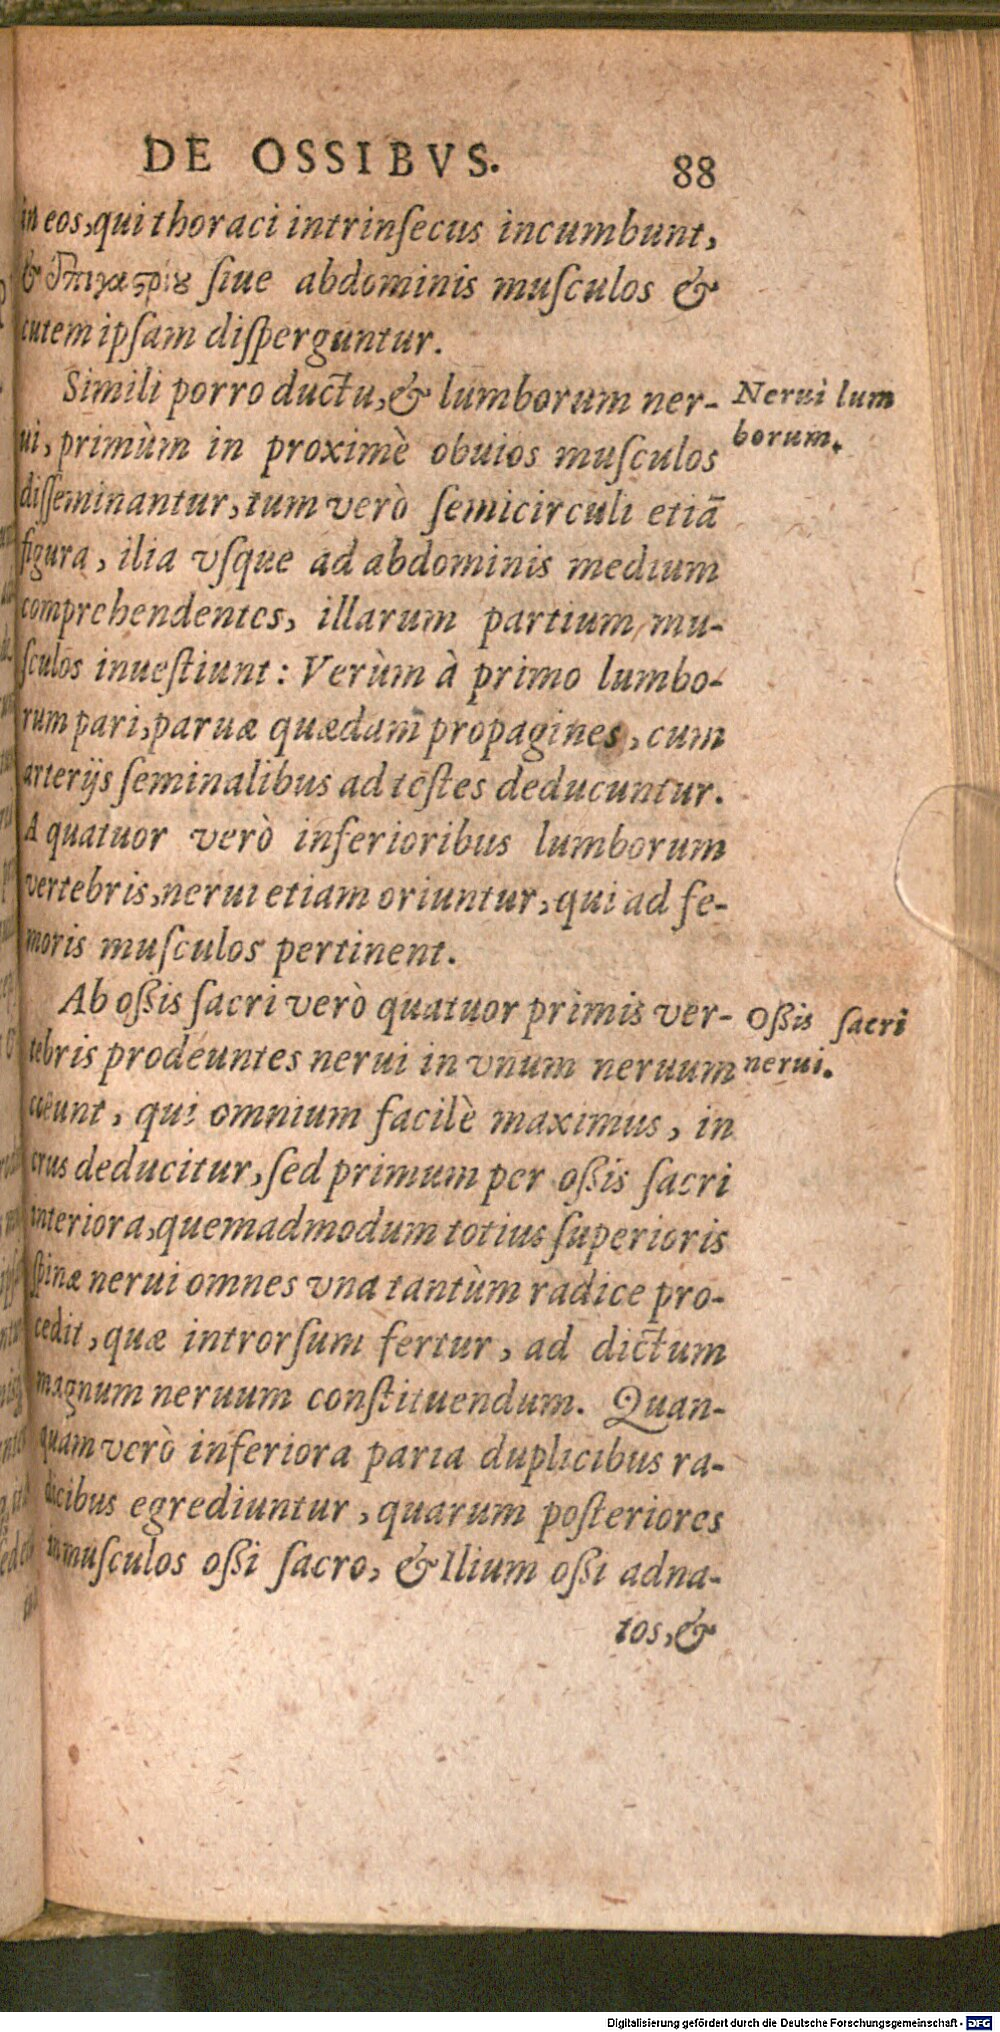 DE OSSIBVS. 88
in eos, qui thoraci intrinſecus incumbunt,
& ἐπιγαςρίȣ ſiue abdominis muſculos &
cutem ipſam diſperguntur.
Simili porro ductu, & lumborum ner-
Nerui lum
borum.
ui, primùm in proximè obuios muſculos
diſſeminantur, tum verò ſemicirculi etiā
figura, ilia vſque ad abdominis medium
comprehendentes, illarum partium mu-
ſculos inueſtiunt: Verùm à primo lumbo-
rum pari, paruæ quædam propagines, cum
arterijs ſeminalibus ad teſtes deducuntur.
A quatuor verò inferioribus lumborum
vertebris, nerui etiam oriuntur, qui ad fe-
moris muſculos pertinent.
Ab oßis ſacri verò quatuor primis ver-
Oßis ſacri
nerui.
tebris prodeuntes nerui in vnum neruum
coëunt, qui omnium facilè maximus, in
crus deducitur, ſed primum per oßis ſacri
interiora, quemadmodum totius ſuperioris
ſpinæ nerui omnes vna tantùm radice pro-
cedit, quæ introrſum fertur, ad dictum
magnum neruum conſtituendum. Quan-
quam verò inferiora paria duplicibus ra-
dicibus egrediuntur, quarum poſteriores
in muſculos oßi ſacro, & Ilium oßi adna-
tos, &
Digitalisierung gefördert durch die Deutsche Forschungsgemeinschaft - DFG